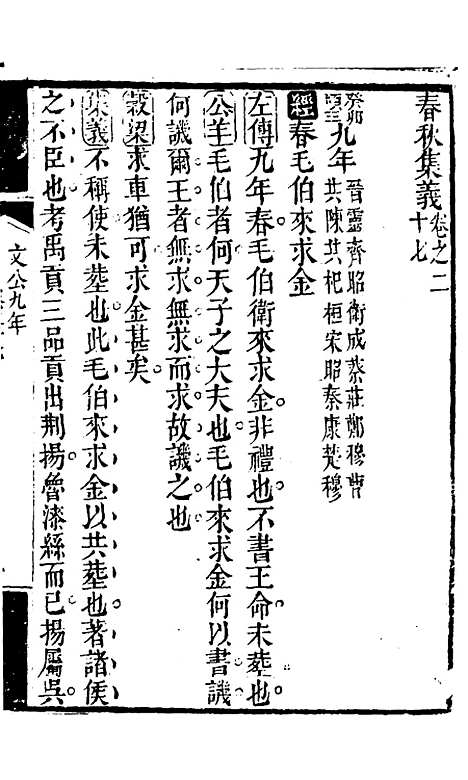 春秋集義卷之二十七
癸卯頃王九年晉靈齊昭衛成蔡莊鄭穆曹共陳共杞桓宋昭秦康楚穆
經春毛伯來求金
左傳九年春毛伯衛來求金非禮也不書王命未葬也
公羊毛伯者何天子之大夫也毛伯來求金何以書譏
何譏爾王者無求無求而求故譏之也
穀梁求車猶可求金甚矣
集義不稱使未葬也此毛伯來求金以共葬也著諸侯
之不臣也考禹貢三品貢出荆揚魯漆絲而已揚屬吳
文公九年